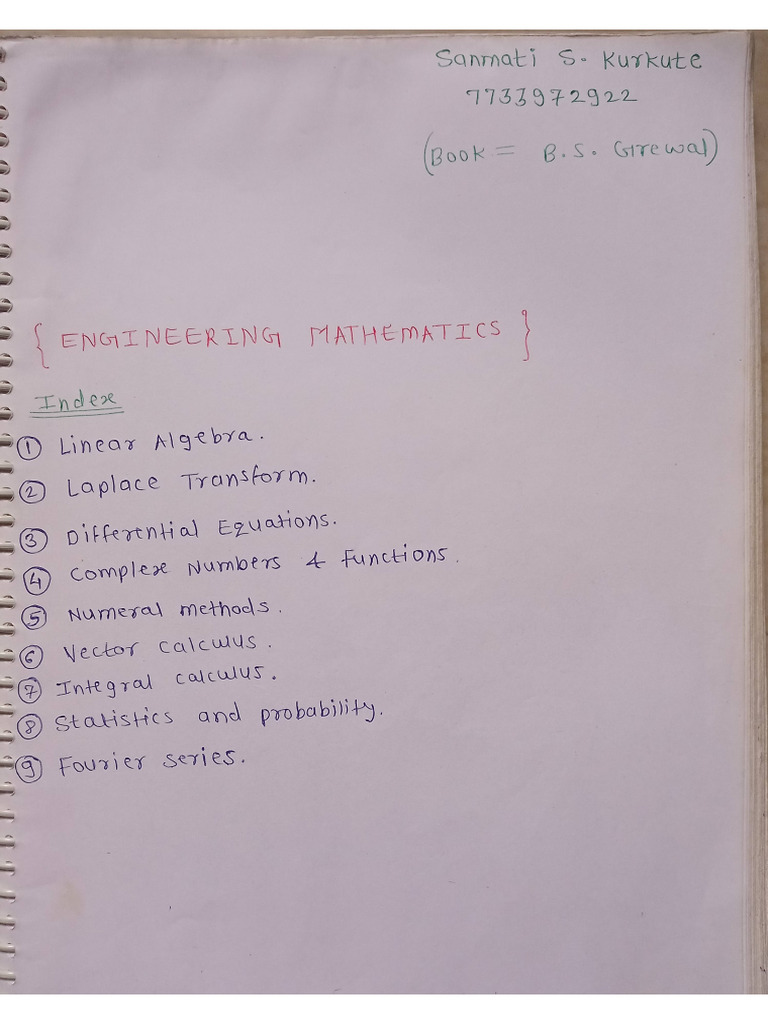 Sanmati S. Kurkute
7733972922
(Book = B.S. Grewal)
{ ENGINEERING MATHEMATICS }
Index
① Linear Algebra.
② Laplace Transform.
③ Differential Equations.
④ Complex Numbers & Functions.
⑤ Numeral methods.
⑥ Vector calculus.
⑦ Integral calculus.
⑧ Statistics and probability.
⑨ Fourier series.